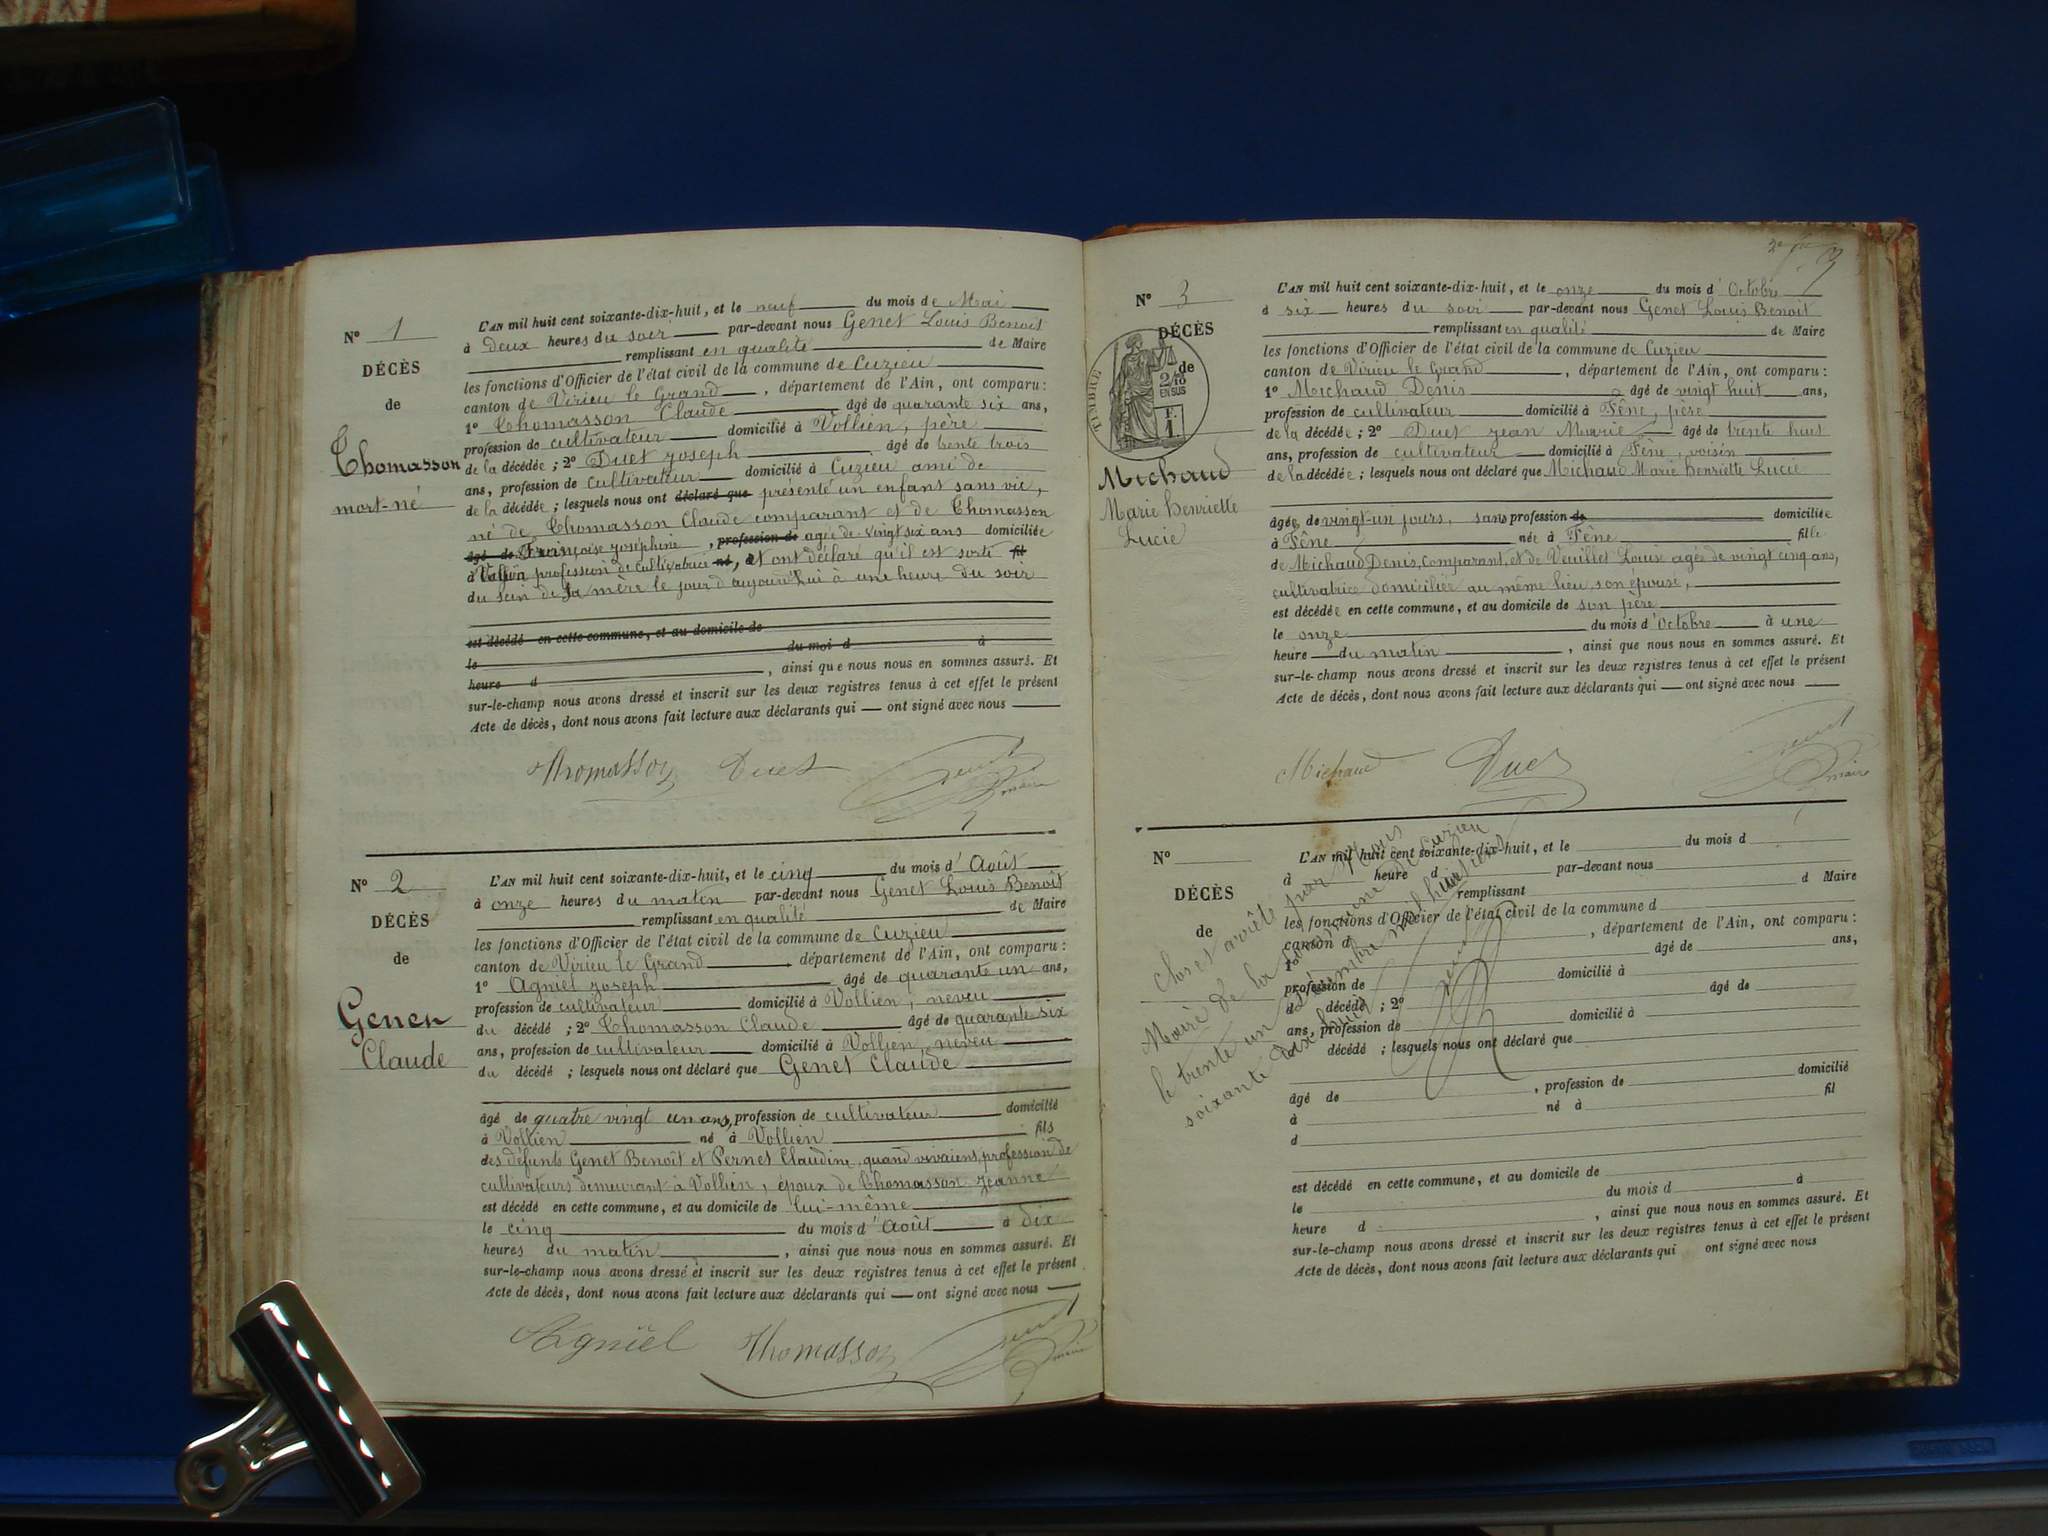 Nº 1
DÉCÈS
de
Thomasson
mort-né
L'AN mil huit cent soixante-dix-huit, et le neuf du mois de Mai
à Deux heures du soir par-devant nous Genet Louis Benoit
remplissant en qualité de Maire
les fonctions d'Officier de l'état civil de la commune de Cuzieu
canton de Virieu le Grand, département de l'Ain, ont comparu :
1º Thomasson Claude âgé de quarante six ans,
profession de cultivateur domicilié à Vollien, père
de la décédée ; 2º Duet Joseph âgé de trente trois
ans, profession de cultivateur domicilié à Cuzieu ami de
de la décédée ; lesquels nous ont déclaré que présenté un enfant sans vie,
né de Thomasson Claude comparant et de Thomasson
âgé de Françoise Joséphine, profession de agée de vingt six ans domiciliée
à Vollien profession de cultivatrice né, et ont déclaré qu'il est sorti fil
du sein de sa mère le jour d'aujourd'hui à une heure du soir
est décédé en cette commune, et au domicile de
le du moi d à
heure d , ainsi que nous nous en sommes assuré. Et
sur-le-champ nous avons dressé et inscrit sur les deux registres tenus à cet effet le présent
Acte de décès, dont nous avons fait lecture aux déclarants qui ont signé avec nous
Thomasson Duet Genet
maire
Nº 2
DÉCÈS
de
Genet
Claude
L'AN mil huit cent soixante-dix-huit, et le cinq du mois d'Août
à onze heures du matin par-devant nous Genet Louis Benoît
remplissant en qualité de Maire
les fonctions d'Officier de l'état civil de la commune de Cuzieu
canton de Virieu le Grand département de l'Ain, ont comparu :
1º Agniel Joseph âgé de quarante un ans,
profession de cultivateur domicilié à Vollien, neveu
du décédé ; 2º Thomasson Claude âgé de quarante six
ans, profession de cultivateur domicilié à Vollien, neveu
du décédé ; lesquels nous ont déclaré que Genet Claude
âgé de quatre vingt un ans, profession de cultivateur domicilié
à Vollien né à Vollien fils
des défunts Genet Benoît et Pernet Claudine, quand vivaient, profession de
cultivateurs demeurant à Vollien, époux de Thomasson Jeanne
est décédé en cette commune, et au domicile de lui-même
le cinq du mois d'Août à dix
heures du matin, ainsi que nous nous en sommes assuré. Et
sur-le-champ nous avons dressé et inscrit sur les deux registres tenus à cet effet le présent
Acte de décès, dont nous avons fait lecture aux déclarants qui ont signé avec nous
Agniel Thomasson Genet
maire
Nº 3
DÉCÈS
de
TIMBRE
2/10
EN SUS
F.
1
Michaud
Marie Henriette
Lucie
L'AN mil huit cent soixante-dix-huit, et le onze du mois d'Octobre
à six heures du soir par-devant nous Genet Louis Benoit
remplissant en qualité de Maire
les fonctions d'Officier de l'état civil de la commune de Cuzieu
canton de Virieu le Grand, département de l'Ain, ont comparu :
1º Michaud Denis âgé de vingt huit ans,
profession de cultivateur domicilié à Fêne, père
de la décédée ; 2º Duet Jean Marie âgé de trente huit
ans, profession de cultivateur domicilié à Fêne, voisin
de la décédée ; lesquels nous ont déclaré que Michaud Marie Henriette Lucie
âgée de vingt-un jours, sans profession de domiciliée
à Fêne née à Fêne fille
de Michaud Denis, Comparant, et de Veuillet Louise agée de vingt cinq ans,
cultivatrice domiciliée au même lieu, son épouse,
est décédée en cette commune, et au domicile de son père
le onze du mois d'Octobre à une
heure du matin, ainsi que nous nous en sommes assuré. Et
sur-le-champ nous avons dressé et inscrit sur les deux registres tenus à cet effet le présent
Acte de décès, dont nous avons fait lecture aux déclarants qui ont signé avec nous
Michaud Duet Genet
maire
Nº
DÉCÈS
de
L'AN mil huit cent soixante-dix-huit, et le du mois d
à heure d par-devant nous
remplissant d Maire
les fonctions d'Officier de l'état civil de la commune d
canton d , département de l'Ain, ont comparu :
1º âgé de ans,
profession de domicilié à
d décédé ; 2º âgé de
ans, profession de domicilié à
d décédé ; lesquels nous ont déclaré que
âgé de , profession de domicilié
à né à fil
d
est décédé en cette commune, et au domicile de
le du mois d à
heure d , ainsi que nous nous en sommes assuré. Et
sur-le-champ nous avons dressé et inscrit sur les deux registres tenus à cet effet le présent
Acte de décès, dont nous avons fait lecture aux déclarants qui ont signé avec nous
Clos et arrêté par Nous
Maire de la Commune de Cuzieu
le trente un Décembre mil huit cent
soixante dix huit
Genet